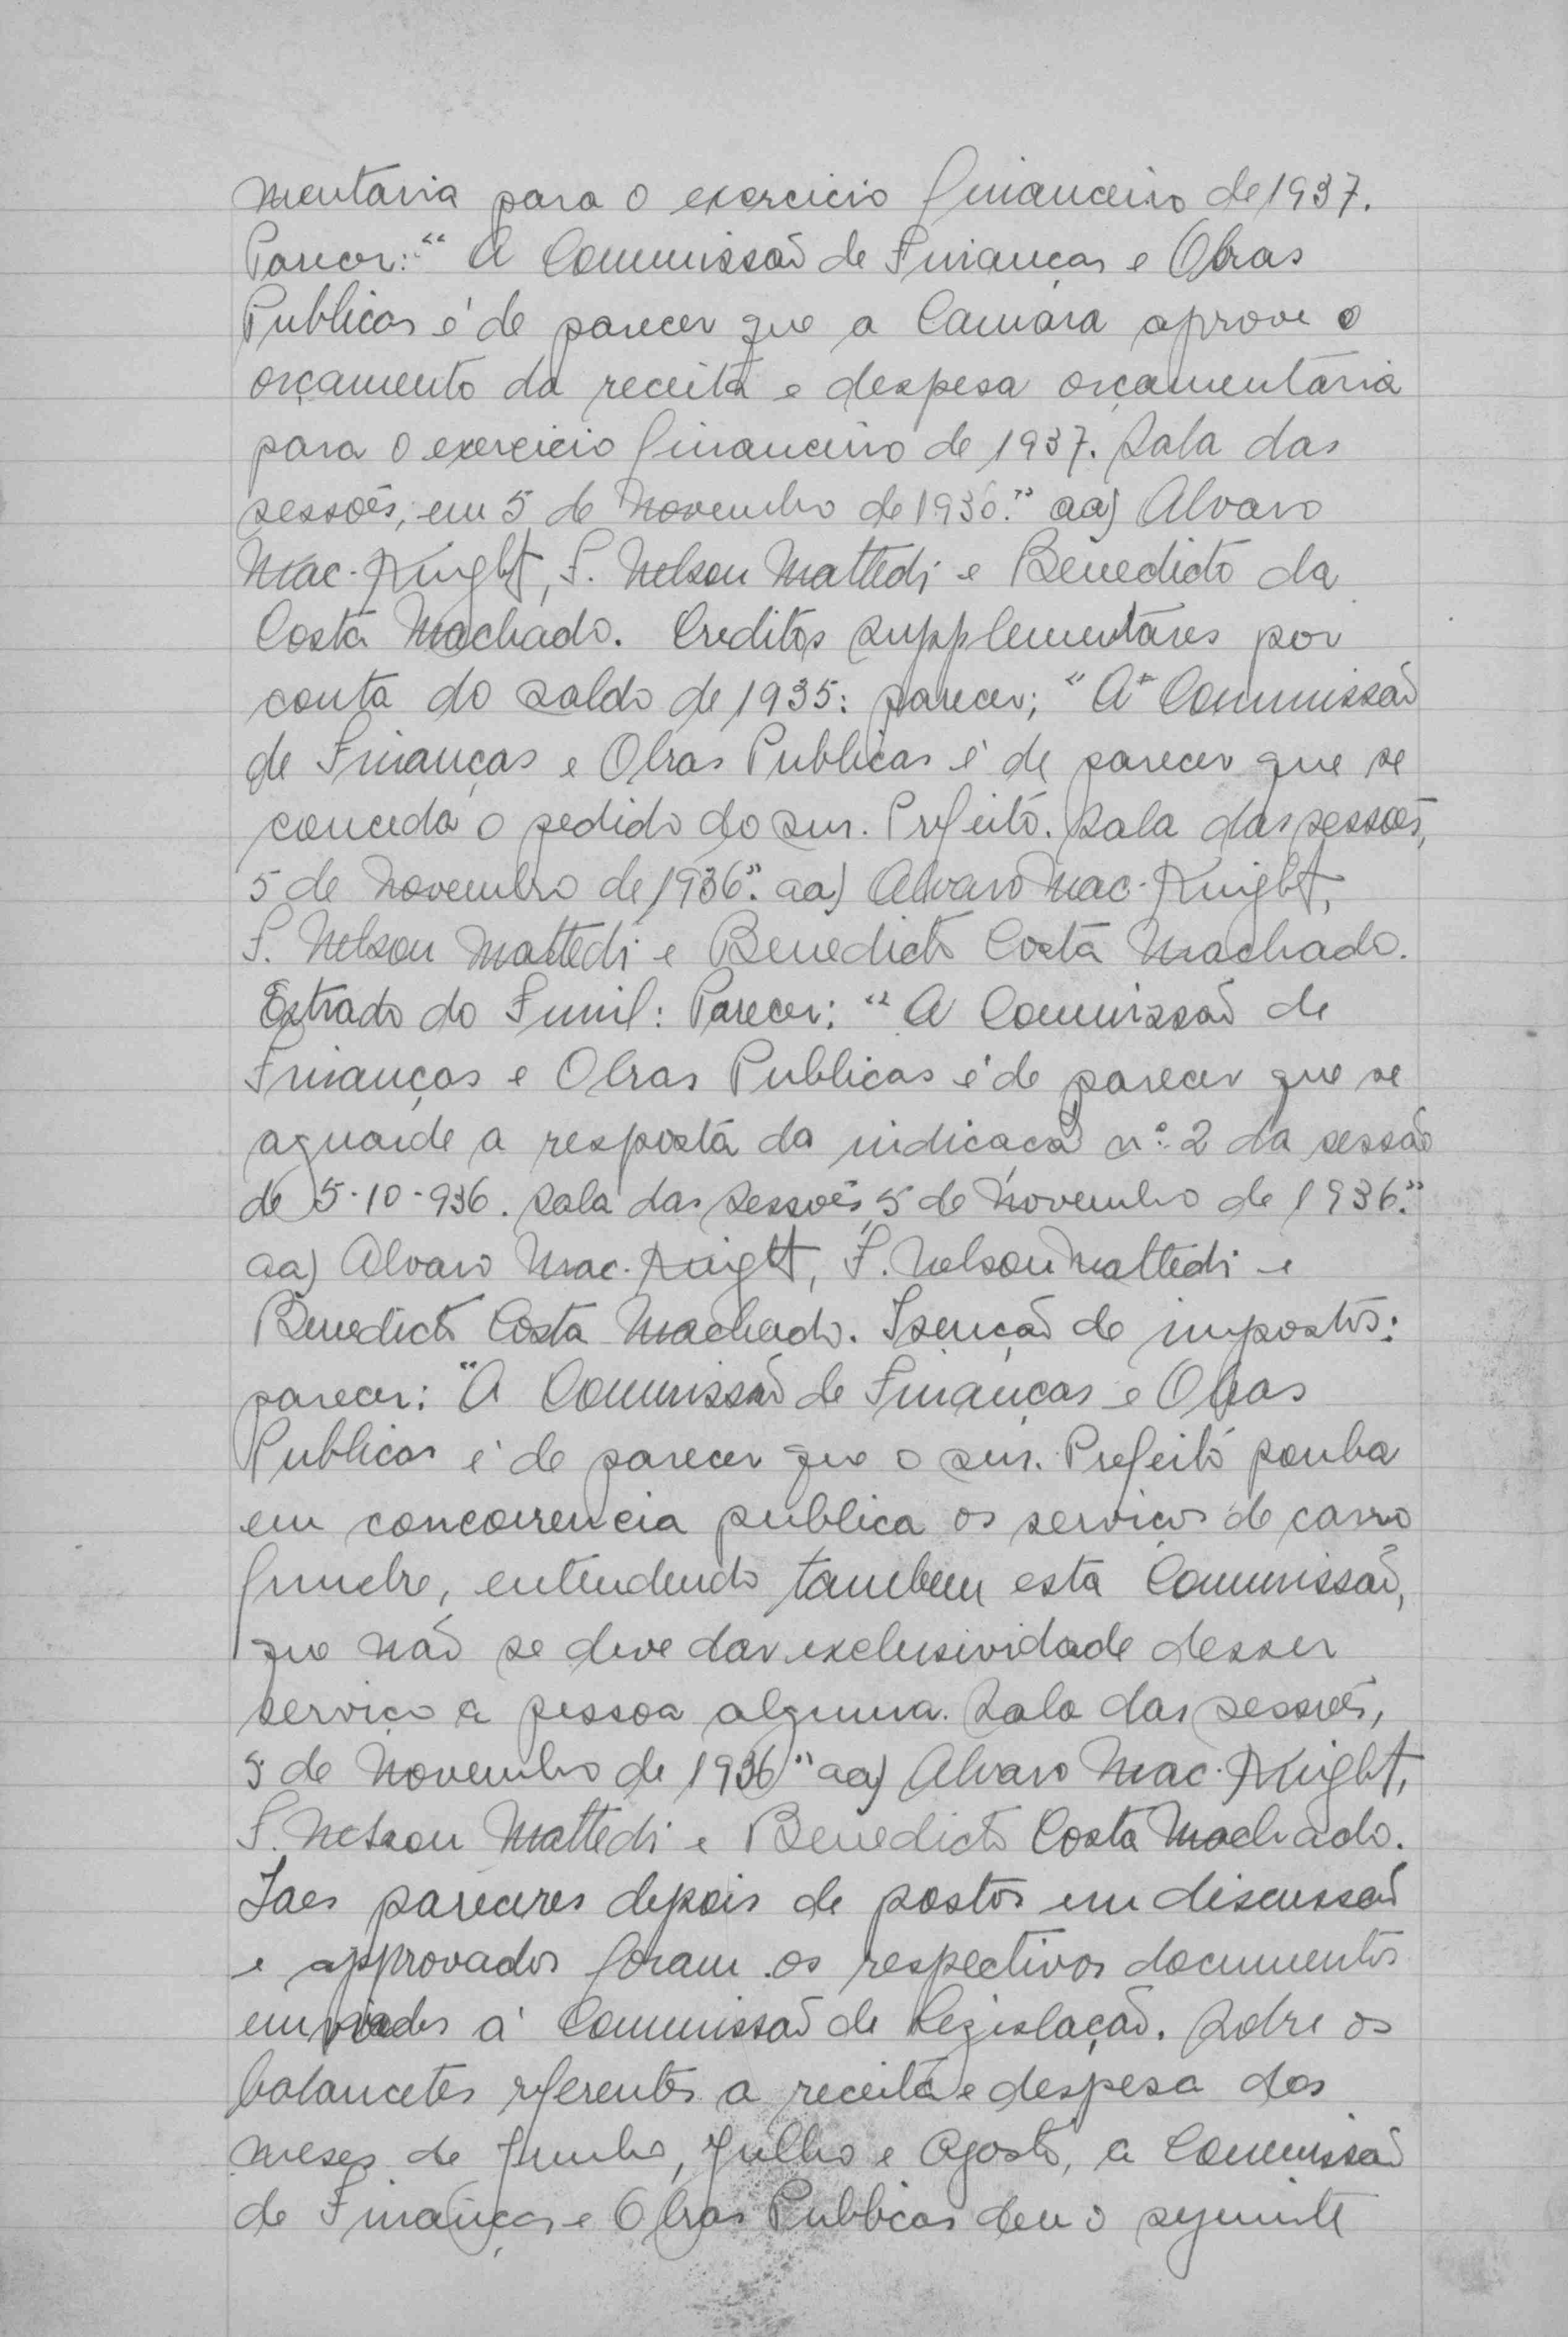 mentaria para o exercicio financeiro de 1937.
Parecer: "A Commissão de Finanças e Obras
Publicas é de parecer que a Camara aprove o
orçamento da receita e despesa orçamentaria
para o exercicio financeiro de 1937. Sala das
sessões, em 5 de Novembro de 1936." aa) Alvaro
Mac-Knight, F. Nelson Mattedi e Benedicto da
Costa Machado. Creditos supplementares por
conta do saldo de 1935: parecer; "A Commissão
de Finanças e Obras Publicas é de parecer que se
conceda o pedido do snr. Prefeito. Sala das sessões,
5 de Novembro de 1936". aa) Alvaro Mac-Knight,
F. Nelson Mattedi e Benedicto Costa Machado.
Estrado do Funil: Parecer: "A Commissão de
Finanças e Obras Publicas é de parecer que se
aguarde a resposta da indicacã nº 2 da sessão
de 5-10-936. Sala das Sessões, 5 de Novembro de 1936."
aa) Alvaro Mac-Knight, F. Nelson Mattedi e
Benedicto Costa Machado. Isenção de impostos:
parecer: "A Commissão de Finanças e Obras
Publicas é de parecer que o snr. Prefeito ponha
em concorrencia publica os serviços de carro
funebre, entendendo tambem esta Commissão,
que não se deve dar exclusividade desser
serviço a pessoa alguma. Sala das sessões,
5 de Novembro de 1936" aa) Alvaro Mac-Knight,
F. Nelson Mattedi e Benedicto Costa Machado.
Taes pareceres depois de postos em discussão
e approvados foram os respectivos documentos
enviados á Commissão de Legislação. Sobre os
balancetes referentes a receita e despesa dos
meses de Junho, Julho e Agosto, a Commissão
de Finanças e Obras Publicas deu o seguinte